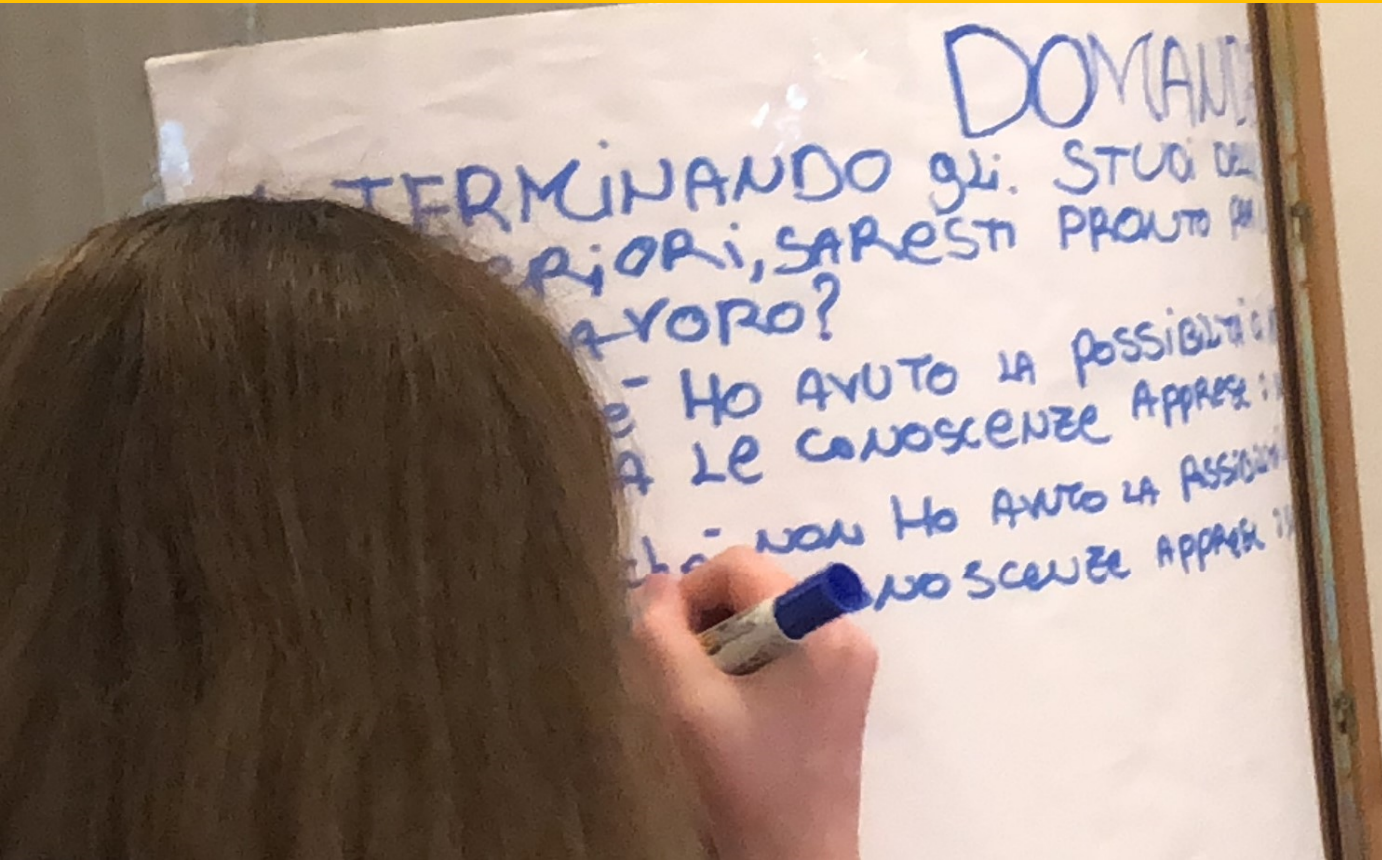 DOMAND
TERMINANDO gli STUDI DEL
ERIORI, SARESTI PRONTO PER
AVORO?
HO AVUTO LA POSSIBILITÀ
A LE CONOSCENZE APPRESE
ché NON HO AVUTO LA POSSIBILITÀ
NOSCENZE APPRESE